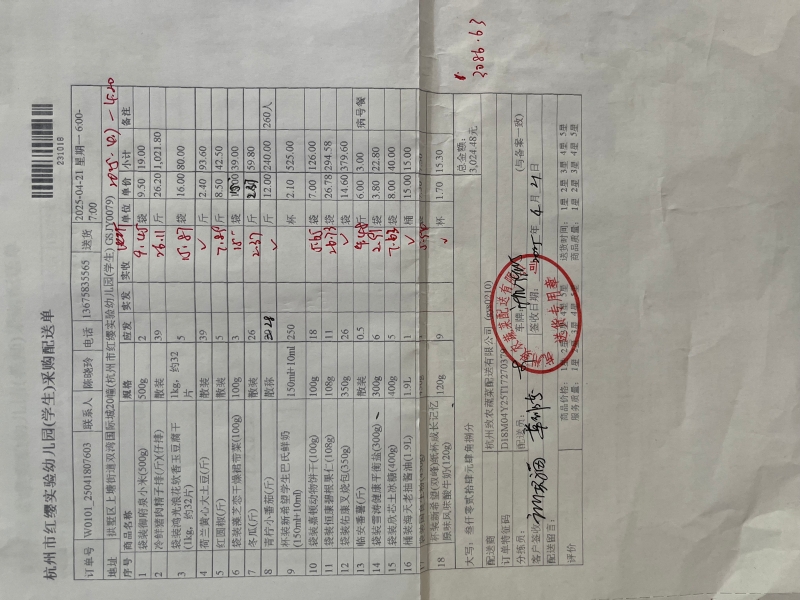 杭州市红缨实验幼儿园(学生)采购配送单
231018
订单号 W0101_25041807603 联系人 陈晓玲 电话 13675835565 送货 2025-04-21 星期一 6:00-7:00
地址 拱墅区上塘街道双湾国际城20幢(杭州市红缨实验幼儿园(学生)
序号 商品名称 规格 应发 实发 实收 单位 单价 小计 备注
1 袋装御府泉小米(500g) 500g 2 9.45 袋 9.50 19.00
2 冷鲜猪肉精子排(斤)(仔排) 散装 39 26.11 斤 26.20 1,021.80
3 袋装鸿光浪花软香玉豆腐干(1kg, 约32片) 1kg, 约32片 5 15.87 袋 16.00 80.00
4 荷兰黄心大土豆(斤) 散装 39 ✓ 斤 2.40 93.60
5 红圆椒(斤) 散装 5 7.89 斤 8.50 42.50
6 (100g) 100g 3 袋 39.00
7 冬瓜(斤) 散装 26 2.37 斤 59.80
8 青柠小番茄(斤) 散装 ✓ 斤 12.00 240.00 260人
9 杯装新希望学生巴氏鲜奶(150ml+10ml) 150ml+10ml 250 杯 2.10 525.00
10 袋装嘉顿动物饼干(100g) 100g 18 5.65 袋 7.00 126.00
11 袋装恒康碧根果仁(108g) 108g 11 26.73 袋 26.78 294.58
12 袋装佑康叉烧包(350g) 350g 26 ✓ 袋 14.60 379.60
13 临安番薯(斤) 散装 0.5 4.48 斤 6.00 3.00 病号餐
14 袋装雪涛健康平衡盐(300g) 300g 6 2.91 袋 3.80 22.80
15 袋装欣芯土冰糖(400g) 400g 5 7.63 袋 8.00 40.00
16 桶装海天老抽酱油(1.9L) 1.9L 1 ✓ 桶 15.00 15.00
18 杯装新希望(双峰)纸杯成长记忆原味风味酸牛奶(120g) 120g 9 ✓ 杯 1.70 15.30
大写: 叁仟零贰拾肆元肆角捌分 总金额: 3,024.48元
3086.63
配送商 杭州致农蔬菜配送有限公司
订单特征码
分拣员: 配送员: 车牌 (与备案一致)
客户签收 签收日期: 2025年4月21日
配送留言:
评价 商品价格: 1星 2星 3星 4星 5星 送货时间: 1星 2星 3星 4星 5星
服务质量: 1星 2星 3星 4星 5星 商品质量: 1星 2星 3星 4星 5星
送货专用章